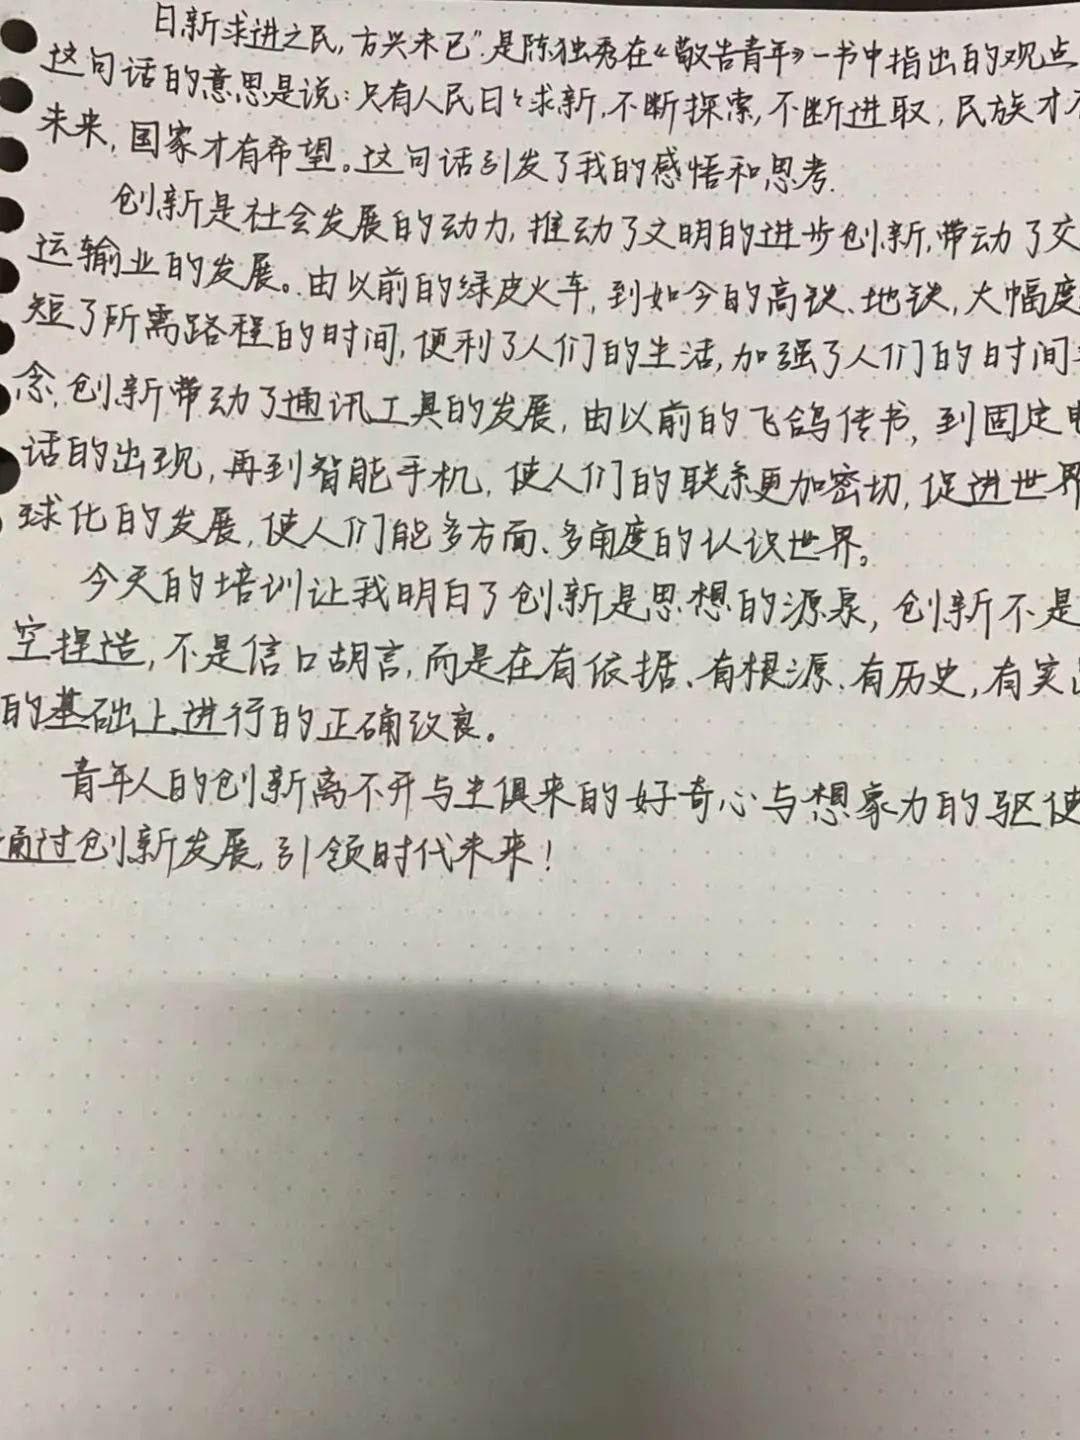 日新求进之民,方兴未已”是陈独秀在《敬告青年》一书中指出的观点
这句话的意思是说:只有人民日々求新,不断探索,不断进取,民族才
未来,国家才有希望。这句话引发了我的感悟和思考.
创新是社会发展的动力,推动了文明的进步创新,带动了交
运输业的发展。由以前的绿皮火车,到如今的高铁、地铁,大幅度
短了所需路程的时间,便利了人们的生活,加强了人们的时间
念,创新带动了通讯工具的发展,由以前的飞鸽传书,到固定
话的出现,再到智能手机,使人们的联系更加密切,促进世界
球化的发展,使人们能多方面、多角度的认识世界。
今天的培训让我明白了创新是思想的源泉,创新不是
空捏造,不是信口胡言,而是在有依据、有根源、有历史,有实
的基础上进行的正确改良。
青年人的创新离不开与生俱来的好奇心与想象力的驱使
通过创新发展,引领时代未来!